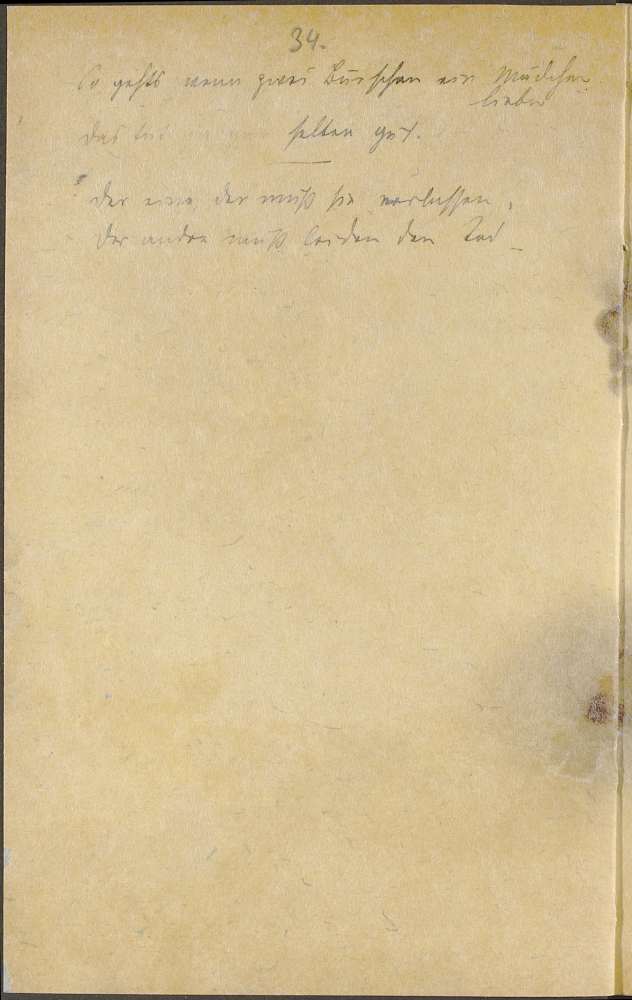 34.
So gehts wenn zwei Burschen ein Mädchen
lieben
das tut gar selten gut.
der eine der muß sie verlassen,
der andre muß leiden den Tod